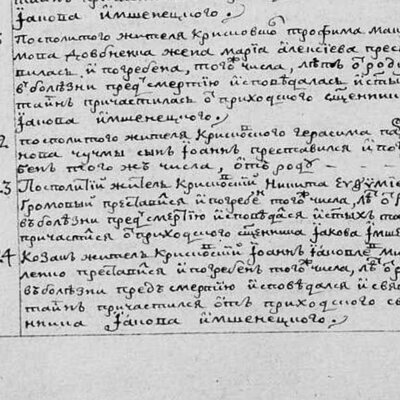 Іакова Имшенецкого.
Посполитого жителя Крисковског трофима Мак
мова Довбненка жена марїа алексїева прес
вилась, и погребена, того числа, лѣтъ ѿ род
въ болѣзни пред смертїю исповѣдалась и ст
таинъ причастилась ѿ приходского сщенни
Іакова Имшенецкого.
2 посполитого жителя Герасима
нова чучмы сынъ Іоаннъ преставился и по
бенъ того жъ числа, ѿтъ роду
3 Посполитїй житель Никита
Громовый преставися и погребе того числа, лѣ ѿ
въ болѣзни пред смертїю исповѣдася и стыхъ та
причастися ѿ приходского сщенника Іакова Имше
4 Козакъ житель Іоаннъ
ленко преставися и погребенъ того числа, лѣ ѿ
въ болѣзни предъ смертїю исповѣдался и свя
таинъ причастился ѿтъ приходского св
нника Іакова Имшенецкого.